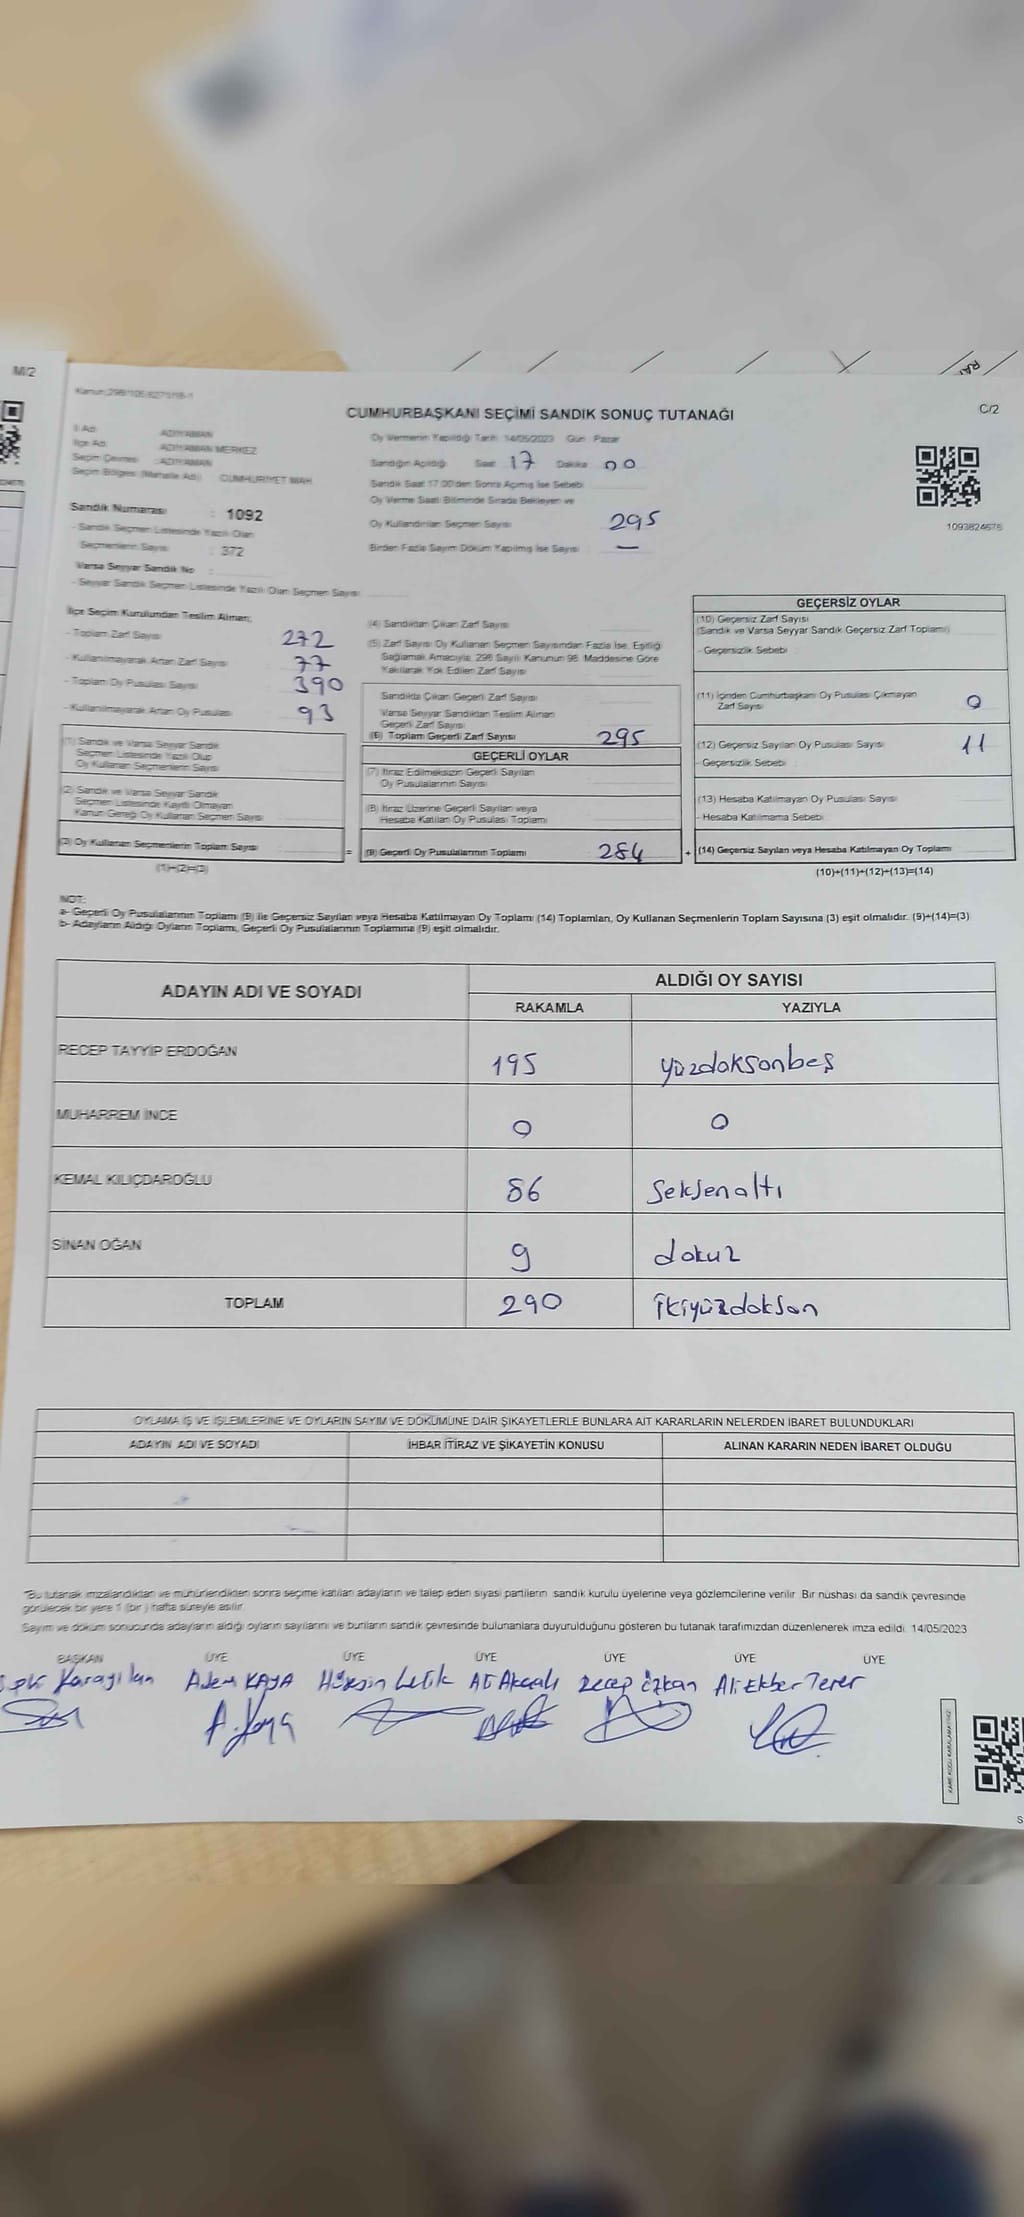 M/2
Kanun:298/105,6271/18-1
CUMHURBAŞKANI SEÇİMİ SANDIK SONUÇ TUTANAĞI
C/2
İl Adı : ADIYAMAN
İlçe Adı : ADIYAMAN MERKEZ
Seçim Çevresi : ADIYAMAN
Seçim Bölgesi (Mahalle Adı) : CUMHURİYET MAH.
Sandık Numarası : 1092
- Sandık Seçmen Listesinde Yazılı Olan
Seçmenlerin Sayısı : 372
Varsa Seyyar Sandık No :
- Seyyar Sandık Seçmen Listesinde Yazılı Olan Seçmen Sayısı
Oy Vermenin Yapıldığı Tarih 14/05/2023 Gün Pazar
Sandığın Açıldığı Saat 17 Dakika 00
Sandık Saat 17.00'den Sonra Açılmış İse Sebebi
Oy Verme Saati Bitiminde Sırada Bekleyen ve
Oy Kullandırılan Seçmen Sayısı 295
Birden Fazla Sayım Döküm Yapılmış İse Sayısı —
1093824676
İlçe Seçim Kurulundan Teslim Alınan;
- Toplam Zarf Sayısı 272
- Kullanılmayarak Artan Zarf Sayısı 77
- Toplam Oy Pusulası Sayısı 390
- Kullanılmayarak Artan Oy Pusulası 93
(1) Sandık ve Varsa Seyyar Sandık
Seçmen Listesinde Yazılı Olup
Oy Kullanan Seçmenlerin Sayısı
(2) Sandık ve Varsa Seyyar Sandık
Seçmen Listesinde Kayıtlı Olmayan
Kanun Gereği Oy Kullanan Seçmen Sayısı
(3) Oy Kullanan Seçmenlerin Toplam Sayısı
(1)+(2)=(3)
(4) Sandıktan Çıkan Zarf Sayısı
(5) Zarf Sayısı Oy Kullanan Seçmen Sayısından Fazla İse, Eşitliği
Sağlamak Amacıyla, 298 Sayılı Kanunun 98. Maddesine Göre
Yakılarak Yok Edilen Zarf Sayısı
Sandıkta Çıkan Geçerli Zarf Sayısı
Varsa Seyyar Sandıktan Teslim Alınan
Geçerli Zarf Sayısı
(6) Toplam Geçerli Zarf Sayısı 295
GEÇERLİ OYLAR
(7) İtiraz Edilmeksizin Geçerli Sayılan
Oy Pusulalarının Sayısı
(8) İtiraz Üzerine Geçerli Sayılan veya
Hesaba Katılan Oy Pusulası Toplamı
= (9) Geçerli Oy Pusulalarının Toplamı 284
GEÇERSİZ OYLAR
(10) Geçersiz Zarf Sayısı
(Sandık ve Varsa Seyyar Sandık Geçersiz Zarf Toplamı)
- Geçersizlik Sebebi
(11) İçinden Cumhurbaşkanı Oy Pusulası Çıkmayan
Zarf Sayısı 0
(12) Geçersiz Sayılan Oy Pusulası Sayısı 11
- Geçersizlik Sebebi
(13) Hesaba Katılmayan Oy Pusulası Sayısı
- Hesaba Katılmama Sebebi
+ (14) Geçersiz Sayılan veya Hesaba Katılmayan Oy Toplamı
(10)+(11)+(12)+(13)=(14)
NOT:
a- Geçerli Oy Pusulalarının Toplamı (9) ile Geçersiz Sayılan veya Hesaba Katılmayan Oy Toplamı (14) Toplamları, Oy Kullanan Seçmenlerin Toplam Sayısına (3) eşit olmalıdır. (9)+(14)=(3)
b- Adayların Aldığı Oyların Toplamı, Geçerli Oy Pusulalarının Toplamına (9) eşit olmalıdır.
ADAYIN ADI VE SOYADI
ALDIĞI OY SAYISI
RAKAMLA YAZIYLA
RECEP TAYYİP ERDOĞAN 195 yüzdoksanbeş
MUHARREM İNCE 0 0
KEMAL KILIÇDAROĞLU 86 Seksenaltı
SİNAN OĞAN 9 dokuz
TOPLAM 290 ikiyüzdoksan
OYLAMA İŞ VE İŞLEMLERİNE VE OYLARIN SAYIM VE DÖKÜMÜNE DAİR ŞİKAYETLERLE BUNLARA AİT KARARLARIN NELERDEN İBARET BULUNDUKLARI
ADAYIN ADI VE SOYADI İHBAR İTİRAZ VE ŞİKAYETİN KONUSU ALINAN KARARIN NEDEN İBARET OLDUĞU
*Bu tutanak imzalandıktan ve mühürlendikten sonra seçime katılan adayların ve talep eden siyasi partilerin sandık kurulu üyelerine veya gözlemcilerine verilir. Bir nüshası da sandık çevresinde
görülecek bir yere 1 (bir) hafta süreyle asılır.
Sayım ve döküm sonucunda adayların aldığı oyların sayılarını ve bunların sandık çevresinde bulunanlara duyurulduğunu gösteren bu tutanak tarafımızdan düzenlenerek imza edildi. 14/05/2023
BAŞKAN ÜYE ÜYE ÜYE ÜYE ÜYE ÜYE
Karayılan Adem KAYA Hüseyin Ali Akçalı Recep Özkan Ali Ekber
A. Kaya